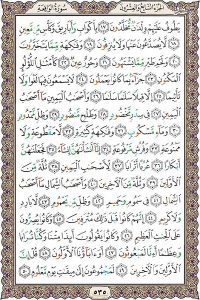 الجزء السابع والعشرون سورة الواقعة
يَطُوفُ عَلَيْهِمْ وِلْدَٰنٌ مُّخَلَّدُونَ ١٧ بِأَكْوَابٍ وَأَبَارِيقَ وَكَأْسٍ مِّن مَّعِينٍ
١٨ لَّا يُصَدَّعُونَ عَنْهَا وَلَا يُنزِفُونَ ١٩ وَفَٰكِهَةٍ مِّمَّا يَتَخَيَّرُونَ
٢٠ وَلَحْمِ طَيْرٍ مِّمَّا يَشْتَهُونَ ٢١ وَحُورٌ عِينٌ ٢٢ كَأَمْثَٰلِ ٱللُّؤْلُوِٕ
ٱلْمَكْنُونِ ٢٣ جَزَآءًۢ بِمَا كَانُوا۟ يَعْمَلُونَ ٢٤ لَا يَسْمَعُونَ فِيهَا لَغْوًا وَلَا
تَأْثِيمًا ٢٥ إِلَّا قِيلًا سَلَٰمًا سَلَٰمًا ٢٦ وَأَصْحَٰبُ ٱلْيَمِينِ مَآ أَصْحَٰبُ
ٱلْيَمِينِ ٢٧ فِى سِدْرٍ مَّخْضُودٍ ٢٨ وَطَلْحٍ مَّنضُودٍ ٢٩ وَظِلٍّ مَّمْدُودٍ
٣٠ وَمَآءٍ مَّسْكُوبٍ ٣١ وَفَٰكِهَةٍ كَثِيرَةٍ ٣٢ لَّا مَقْطُوعَةٍ وَلَا
مَمْنُوعَةٍ ٣٣ وَفُرُشٍ مَّرْفُوعَةٍ ٣٤ إِنَّآ أَنشَأْنَٰهُنَّ إِنشَآءً ٣٥ فَجَعَلْنَٰهُنَّ
أَبْكَارًا ٣٦ عُرُبًا أَتْرَابًا ٣٧ لِّأَصْحَٰبِ ٱلْيَمِينِ ٣٨ ثُلَّةٌ مِّنَ
ٱلْأَوَّلِينَ ٣٩ وَثُلَّةٌ مِّنَ ٱلْءَاخِرِينَ ٤٠ وَأَصْحَٰبُ ٱلشِّمَالِ مَآ أَصْحَٰبُ
ٱلشِّمَالِ ٤١ فِى سَمُومٍ وَحَمِيمٍ ٤٢ وَظِلٍّ مِّن يَحْمُومٍ ٤٣ لَّا بَارِدٍ
وَلَا كَرِيمٍ ٤٤ إِنَّهُمْ كَانُوا۟ قَبْلَ ذَٰلِكَ مُتْرَفِينَ ٤٥ وَكَانُوا۟ يُصِرُّونَ
عَلَى ٱلْحِنثِ ٱلْعَظِيمِ ٤٦ وَكَانُوا۟ يَقُولُونَ أَئِذَا مِتْنَا وَكُنَّا تُرَابًا
وَعِظَٰمًا أَءِنَّا لَمَبْعُوثُونَ ٤٧ أَوَءَابَآؤُنَا ٱلْأَوَّلُونَ ٤٨ قُلْ إِنَّ
ٱلْأَوَّلِينَ وَٱلْءَاخِرِينَ ٤٩ لَمَجْمُوعُونَ إِلَىٰ مِيقَٰتِ يَوْمٍ مَّعْلُومٍ ٥٠
٥٣٥